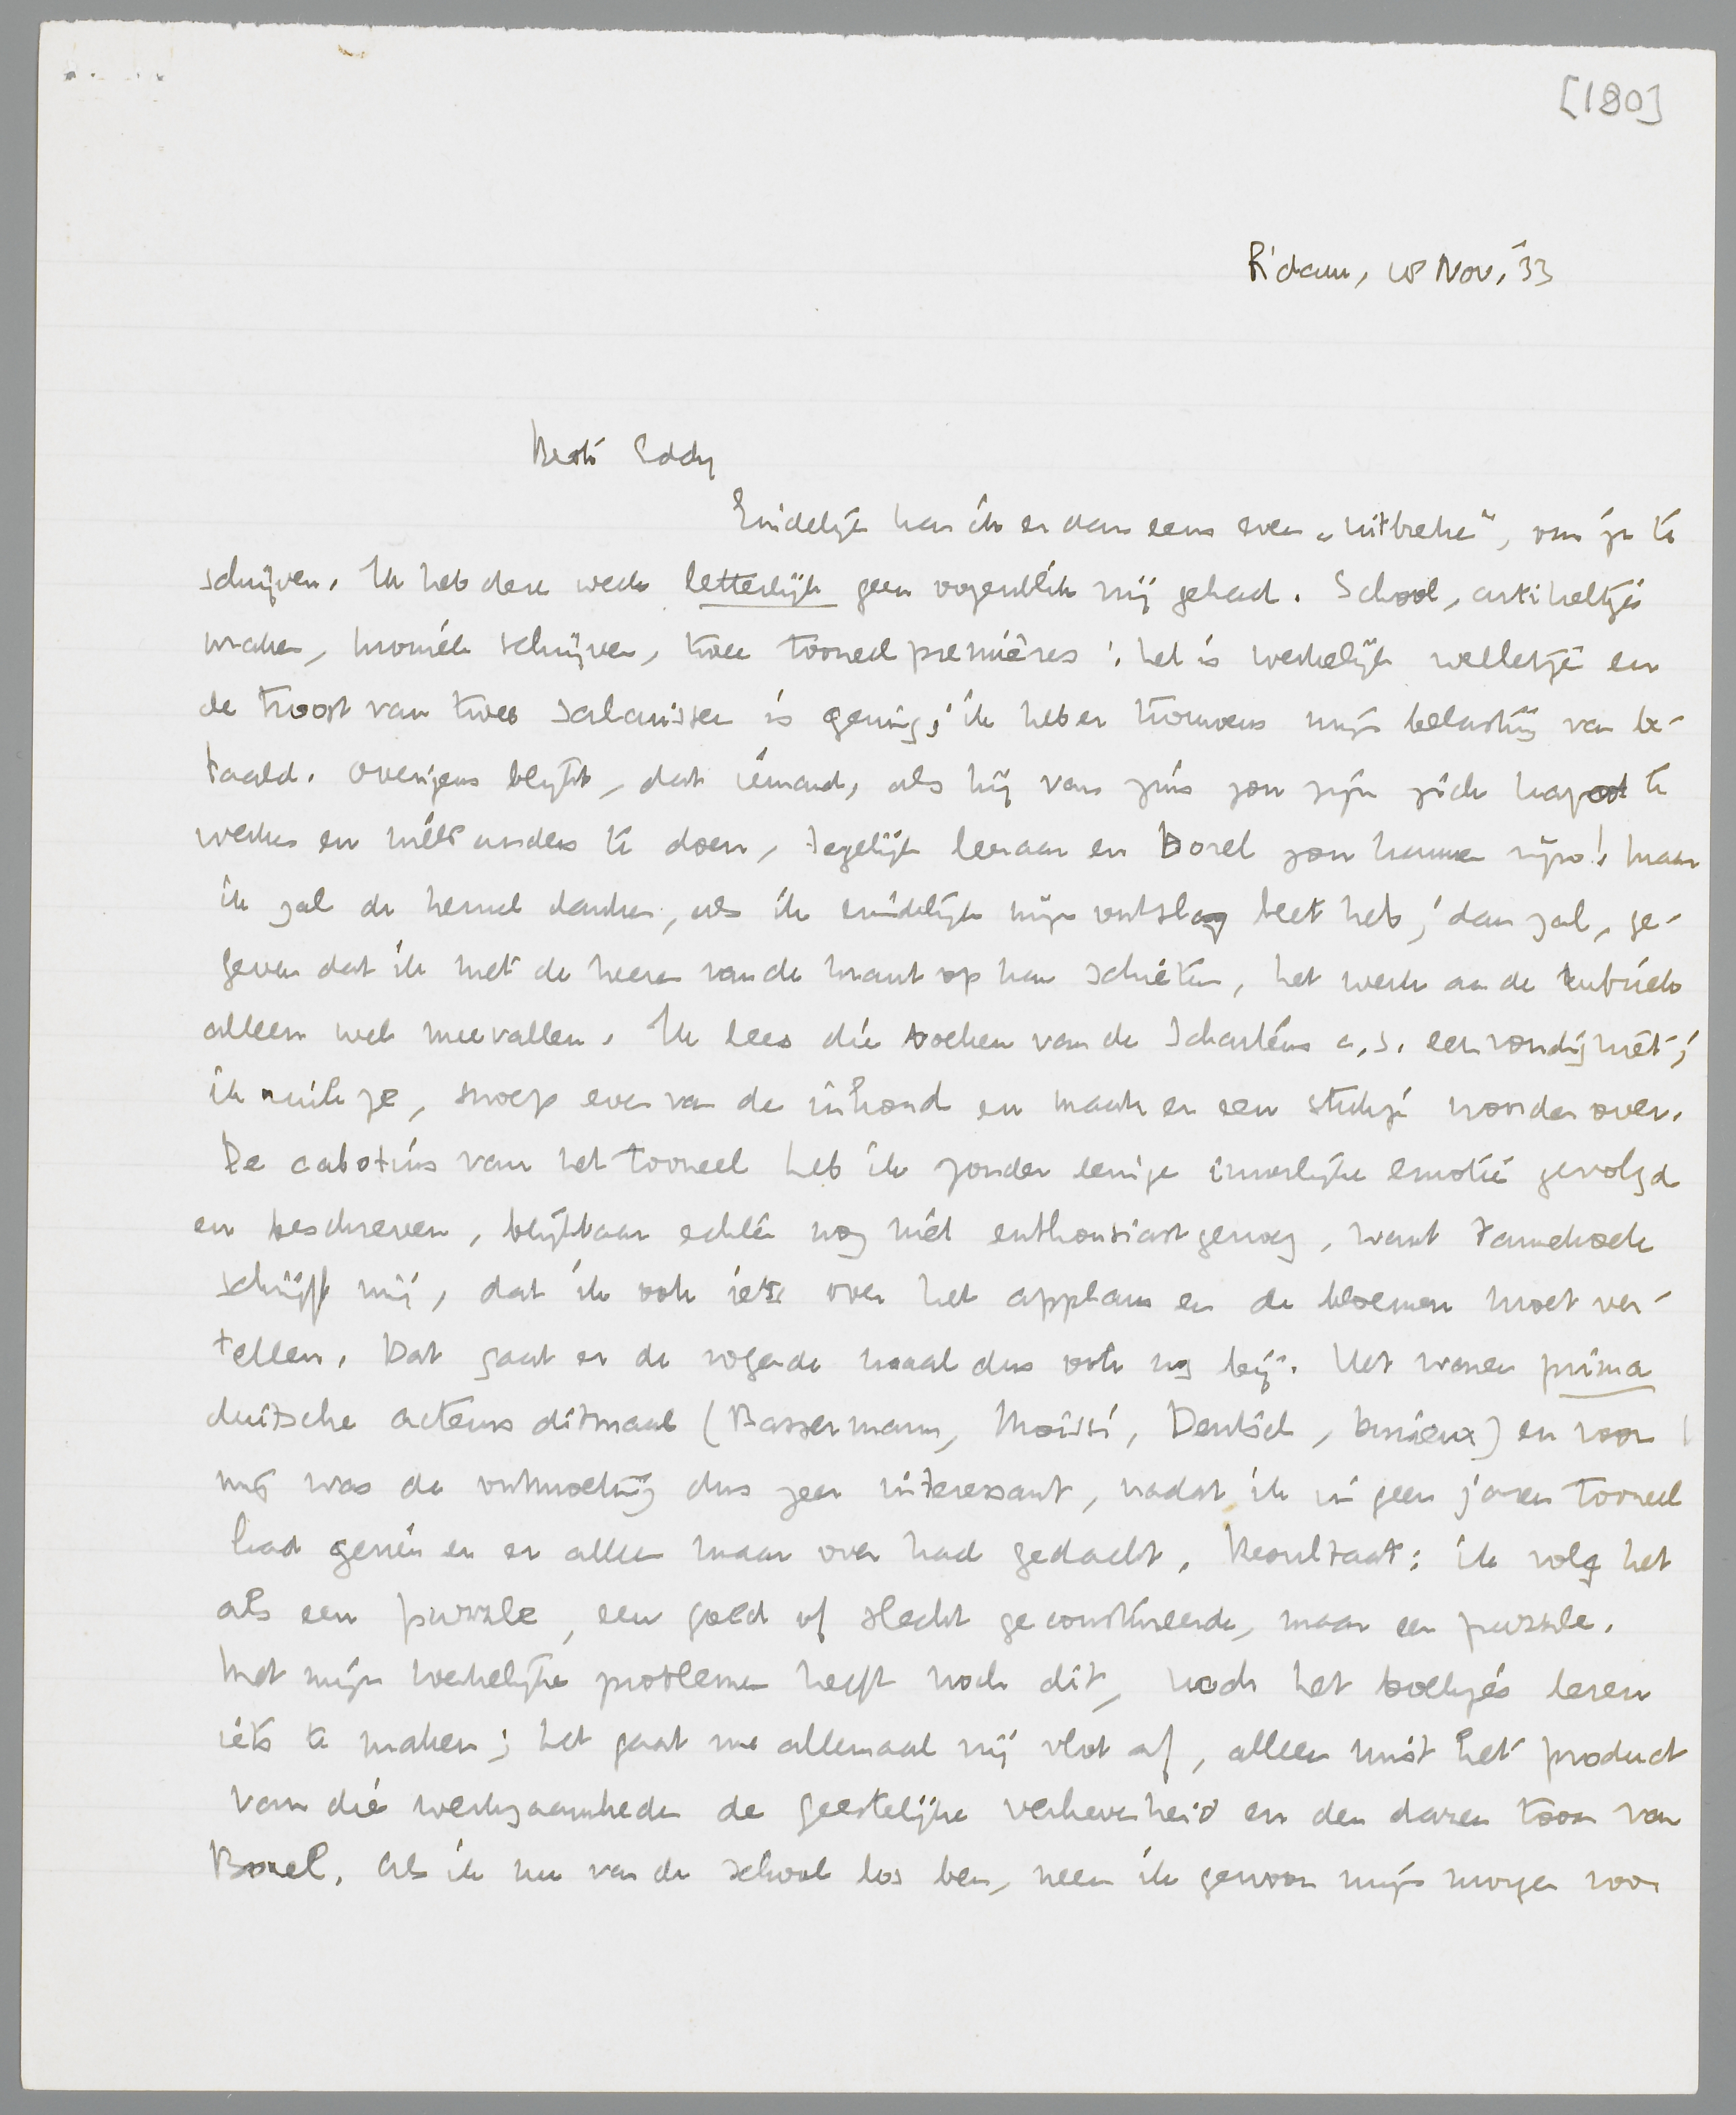 [180]
R'dam, 18 Nov. '33
Beste Eddy
Eindelijk kan ik er dan eens even „uitbreke", om je te
schrijven. Ik heb deze week letterlijk geen oogenblik vrij gehad. School, artikeltjes
maken, kroniek schrijven, twee tooneelpremières: het is werkelijk welletjes en
de troost van twee salarissen is gering; ik heb er trouwens mijn belasting van be-
taald. Overigens blijkt, dat iemand, als hij van zins zou zijn zich kapot te
werken en niets anders te doen, tegelijk leeraar en Borel zou kunnen zijn! Maar
ik zal de hemel danken, als ik eindelijk mijn ontslag beet heb; dan zal, ge-
geven dat ik met de heeren van de krant op kan schieten, het werk aan de rubriek
alleen wel meevallen. Ik lees die boeken van de Scharténs a.s. eenvoudig niet;
ik ruik ze, snoep even van de inhoud en maak er een stukje woorden over.
De cabotins van het tooneel heb ik zonder eenige innerlijke emotie gevolgd
en beschreven, blijkbaar echter nog niet enthousiast genoeg, want
schrijft mij, dat ik ook iets over het applaus en de bloemen moet ver-
tellen. Dat gaat er de volgende maal dus ook nog bij. Het waren prima
duitsche acteurs ditmaal (Bassermann, Moissi, Deutsch, Durieux) en voor
mij was de ontmoeting dus zeer interessant, nadat ik in geen jaren tooneel
had gezien en er alleen maar over had gedacht. Resultaat: ik volg het
als een puzzle, een goed of slecht geconstrueerde, maar een puzzle.
Met mijn werkelijke problemen heeft noch dit, noch het boekjes lezen
iets te maken; het gaat me allemaal vrij vlot af, alleen mist het product
van die werkzaamheden de geestelijke verhevenheid en den dazen toon van
Borel. Als ik nu van de school los ben, neem ik gewoon mijn morgen voor